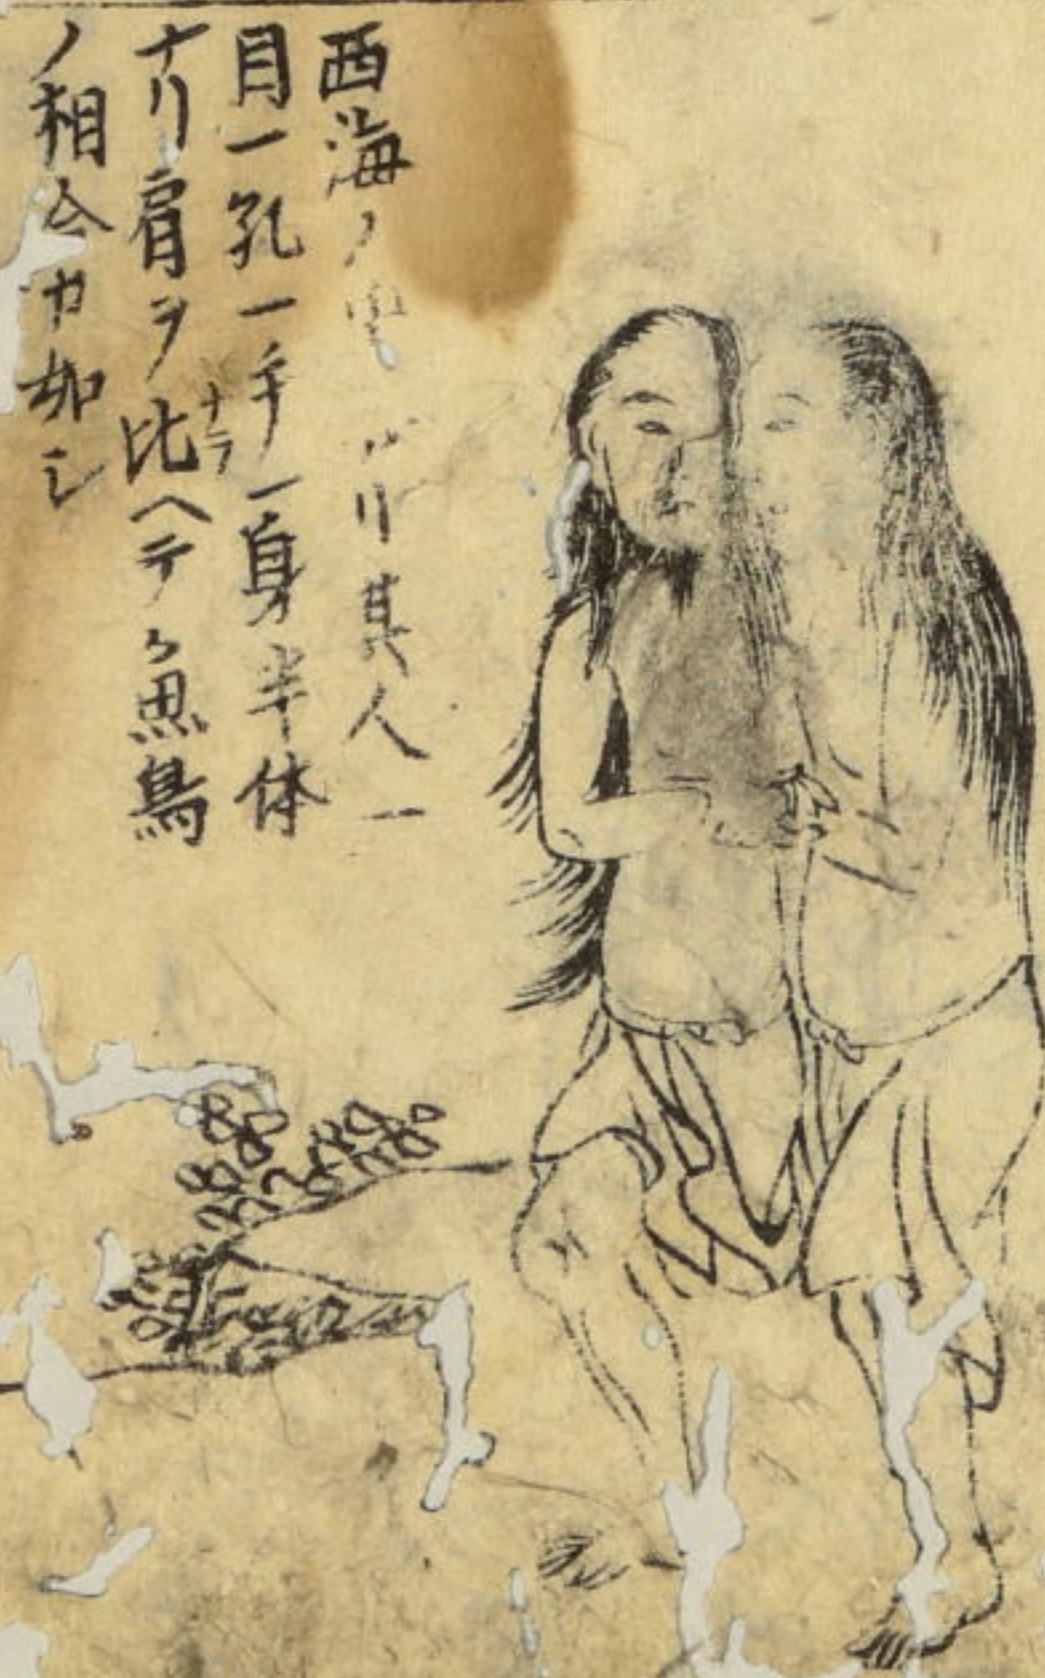 西海ノ リ其人一
目一孔一手一身半体
ナリ肩ヲ比ヘテ魚鳥
ナラ
ノ相合カ如シ